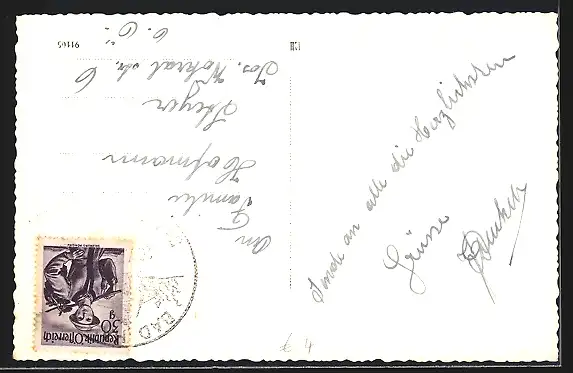 Sende an alle die Herzlichsten
Grüsse
An
Familie
Hofmann
Steyr
Jos. Wokral str. 6
O. Ö.
91165
30 g
Republik Österreich
BAD